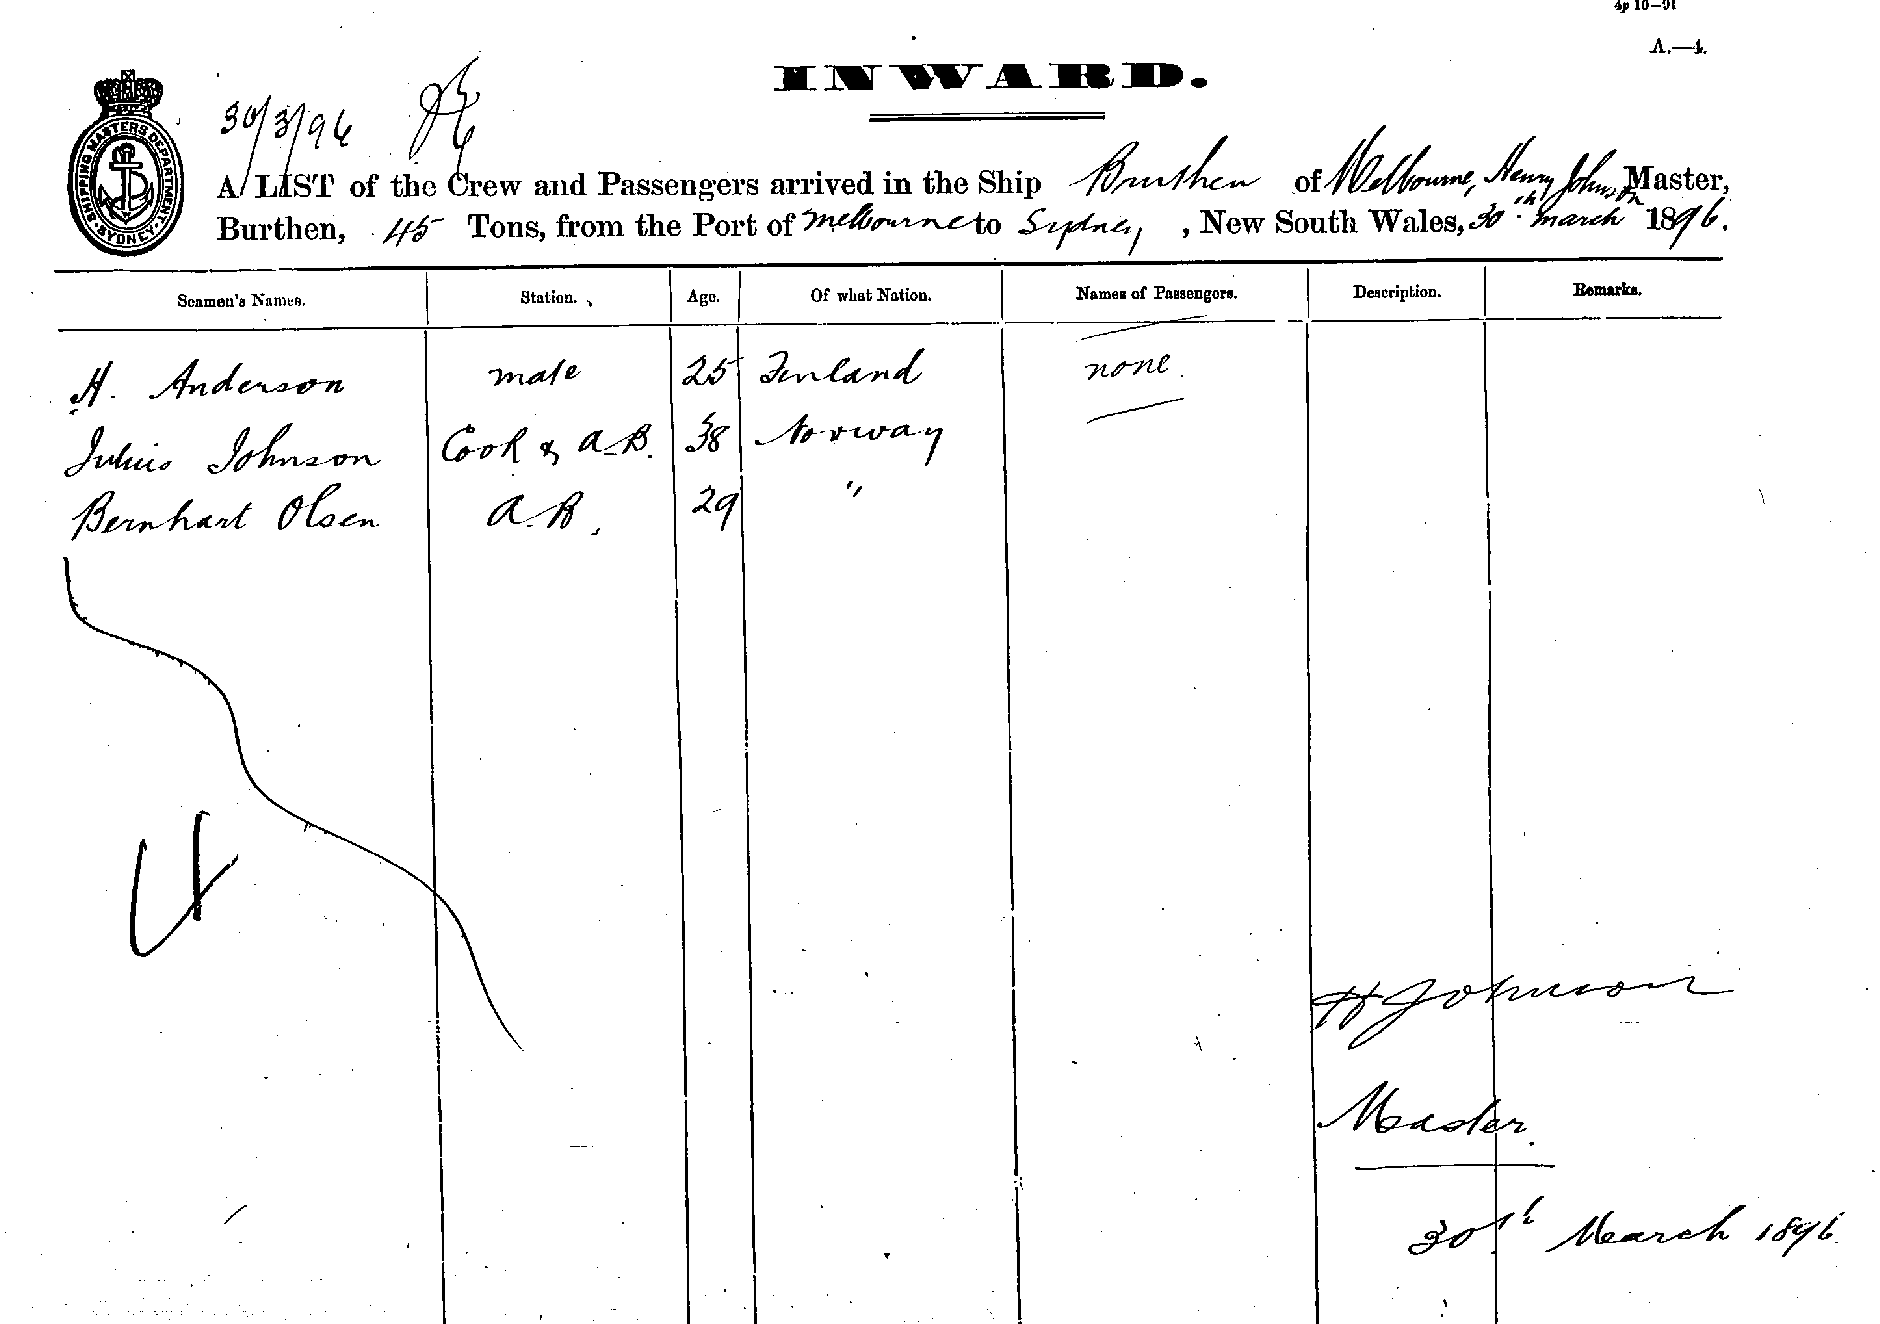 4p 10—91
A.—4.
INWARD.
SHIPPING MASTERS DEPARTMENT. SYDNEY
30/3/96
A LIST of the Crew and Passengers arrived in the Ship Burthen of Melbourne, Henry Johnson Master,
Burthen, 45 Tons, from the Port of Melbourne to Sydney, New South Wales, 30th March 1896.
Seamen's Names. Station. Age. Of what Nation. Names of Passengers. Description. Remarks.
H. Anderson mate 25 Finland none.
Julius Johnson Cook & A.B. 38 Norway
Bernhart Olsen A.B. 29 "
4
H Johnson
Master.
30th March 1896